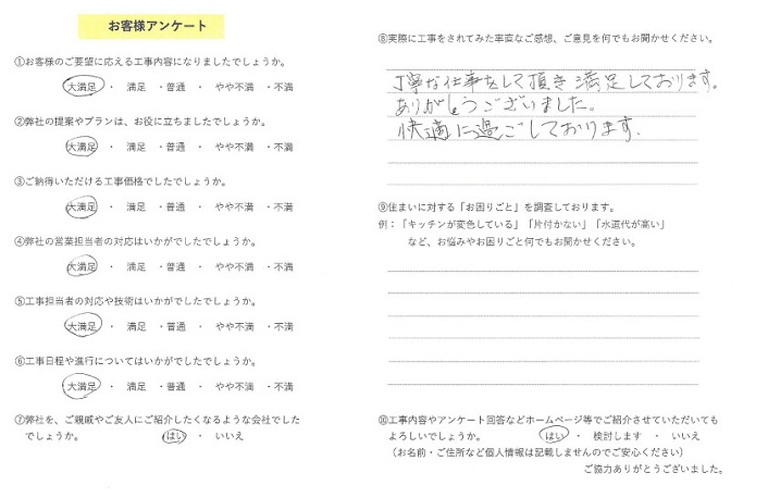 お客様アンケート
①お客様のご要望に応える工事内容になりましたでしょうか。
大満足 ・ 満足 ・普通 ・ やや不満 ・不満
②弊社の提案やプランは、お役に立ちましたでしょうか。
大満足 ・ 満足 ・普通 ・ やや不満 ・不満
③ご納得いただける工事価格でしたでしょうか。
大満足 ・ 満足 ・普通 ・ やや不満 ・不満
④弊社の営業担当者の対応はいかがでしたでしょうか。
大満足 ・ 満足 ・普通 ・ やや不満 ・不満
⑤工事担当者の対応や技術はいかがでしたでしょうか。
大満足 ・ 満足 ・普通 ・ やや不満 ・不満
⑥工事日程や進行についてはいかがでしたでしょうか。
大満足 ・ 満足 ・普通 ・ やや不満 ・不満
⑦弊社を、ご親戚やご友人にご紹介したくなるような会社でした
でしょうか。 はい ・ いいえ
⑧実際に工事をされてみた率直なご感想、ご意見を何でもお聞かせください。
丁寧な仕事をして頂き満足しております。
ありがとうございました。
快適に過ごしております.
⑨住まいに対する「お困りごと」を調査しております。
例：「キッチンが変色している」「片付かない」「水道代が高い」
など、お悩みやお困りごと何でもお聞かせください。
⑩工事内容やアンケート回答などホームページ等でご紹介させていただいても
よろしいでしょうか。 はい ・ 検討します ・ いいえ
(お名前・ご住所など個人情報は記載しませんのでご安心ください)
ご協力ありがとうございました。